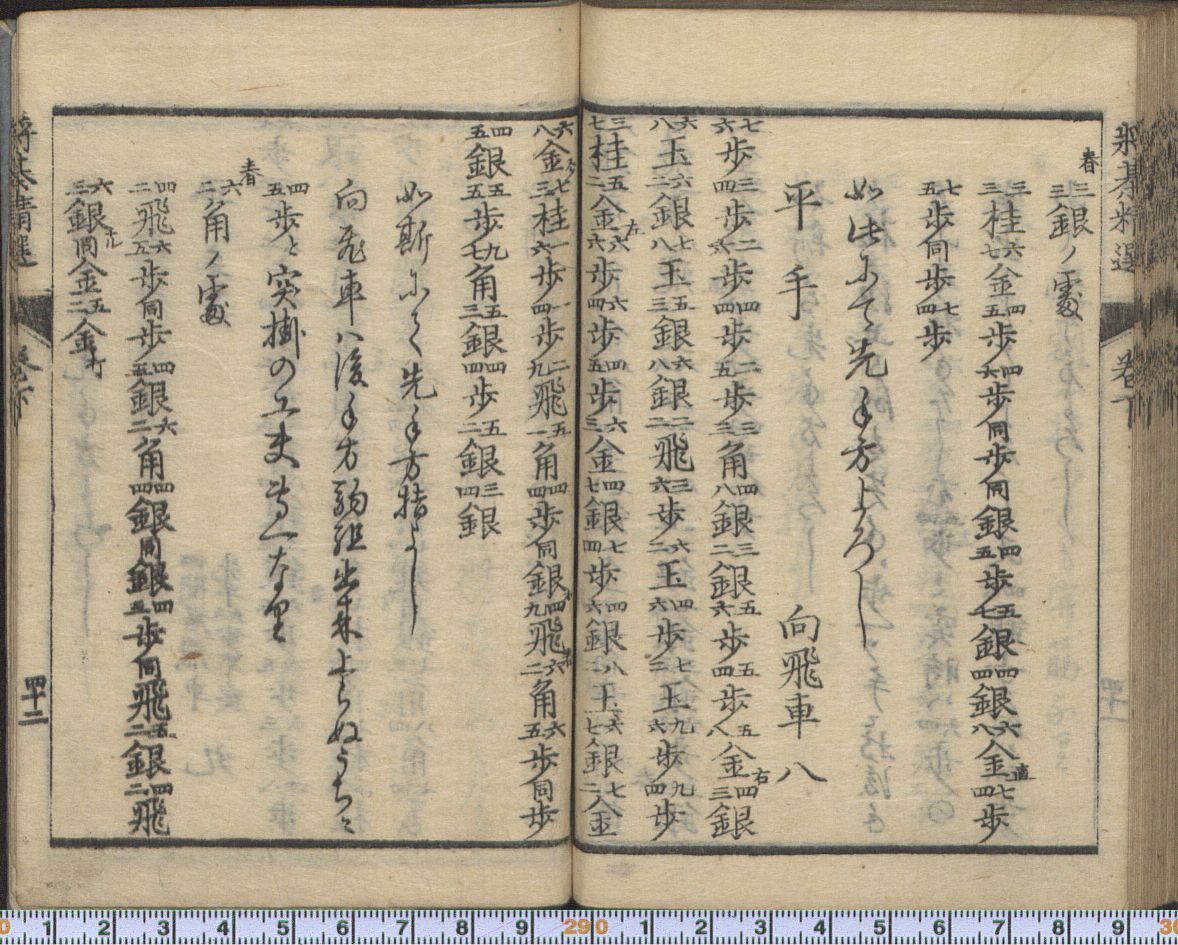 將棊精選 卷下
春 三三銀ノ處
三三桂六七金四五歩四六歩同歩同銀四五歩五七銀四四銀六八金直七四歩
七五歩同歩七四歩
如此にて先手方よろし
平手 向飛車 八
七六歩三四歩二六歩四四歩二五歩三三角四八銀三二銀五六歩五四歩五八金右四三銀
六八玉六二銀七八玉五三銀六八銀二二飛三六歩六二玉四六歩七二玉九六歩九四歩
三七桂五二金左六六歩六四歩四五歩六三金四七銀七四歩四六銀八二玉六七銀七二金
六八金上七三桂一六歩一四歩二九飛五一角四四歩同銀右四九飛六二角六五歩同歩
四五銀五五歩九七角五三銀四四歩五二銀三四銀
如斯にて先手方指よし
向飛車ハ後手方駒組出来上らぬうちニ
四五歩と突掛の工夫専一なり
春 六二角ノ處
四二飛六五歩同歩四五銀六二角四四銀同銀四五歩同飛五二銀四二飛
六三銀成同金五二金打
將棊精選 卷下 四十二